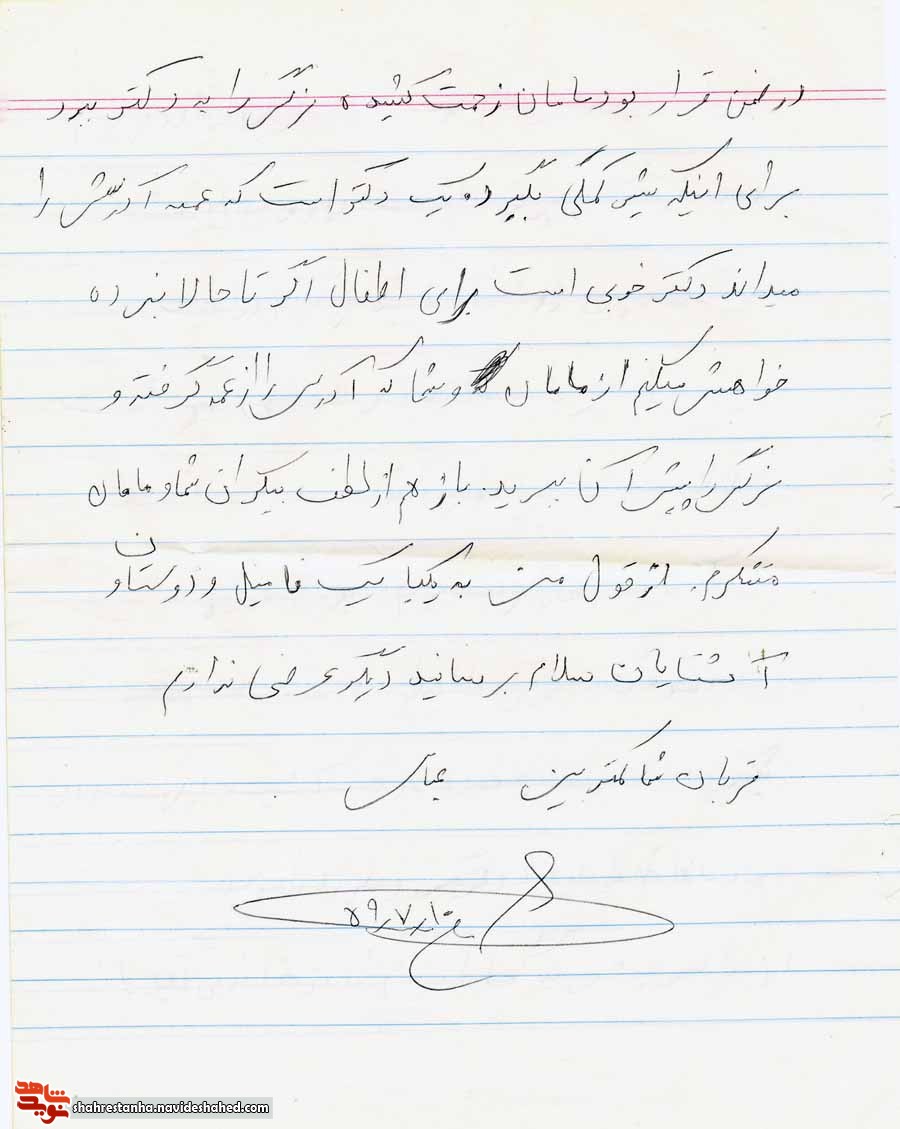 در ضمن قرار بود مامان زحمت کشیده نرگس را به دکتر ببرد
برای اینکه شیر کمکی بگیرد یک دکتر است که عمه آدرسش را
میداند دکتر خوبی است برای اطفال اگر تا حالا نبرده
خواهش میکنم از مامان و شما که آدرس را از عمه گرفته و
نرگس را پیش آن ببرید. باز هم از لطف بیکران شما و مامان
متشکرم. از قول من به یکایک فامیل و دوستان و
آشنایان سلام برسانید دیگر عرضی ندارم
قربان شما کمترین عباس
۵۹/۷/۱۰
نوید شاهد
shahrestanha.navideshahed.com